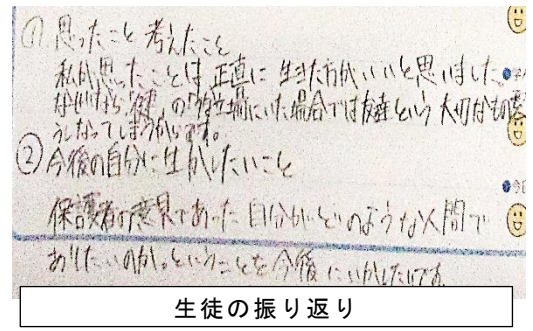 ① 思ったこと 考えたこと
私が思ったことは正直に生きた方がいいと思いました。
なぜなら「健」の立場にいた場合では友達という大切なもの
うしなってしまうからです。
② 今後の自分に生かしたいこと
保護者の意見であった自分がどのような人間で
ありたいのか。ということを今後にいかしたいです。
生徒の振り返り